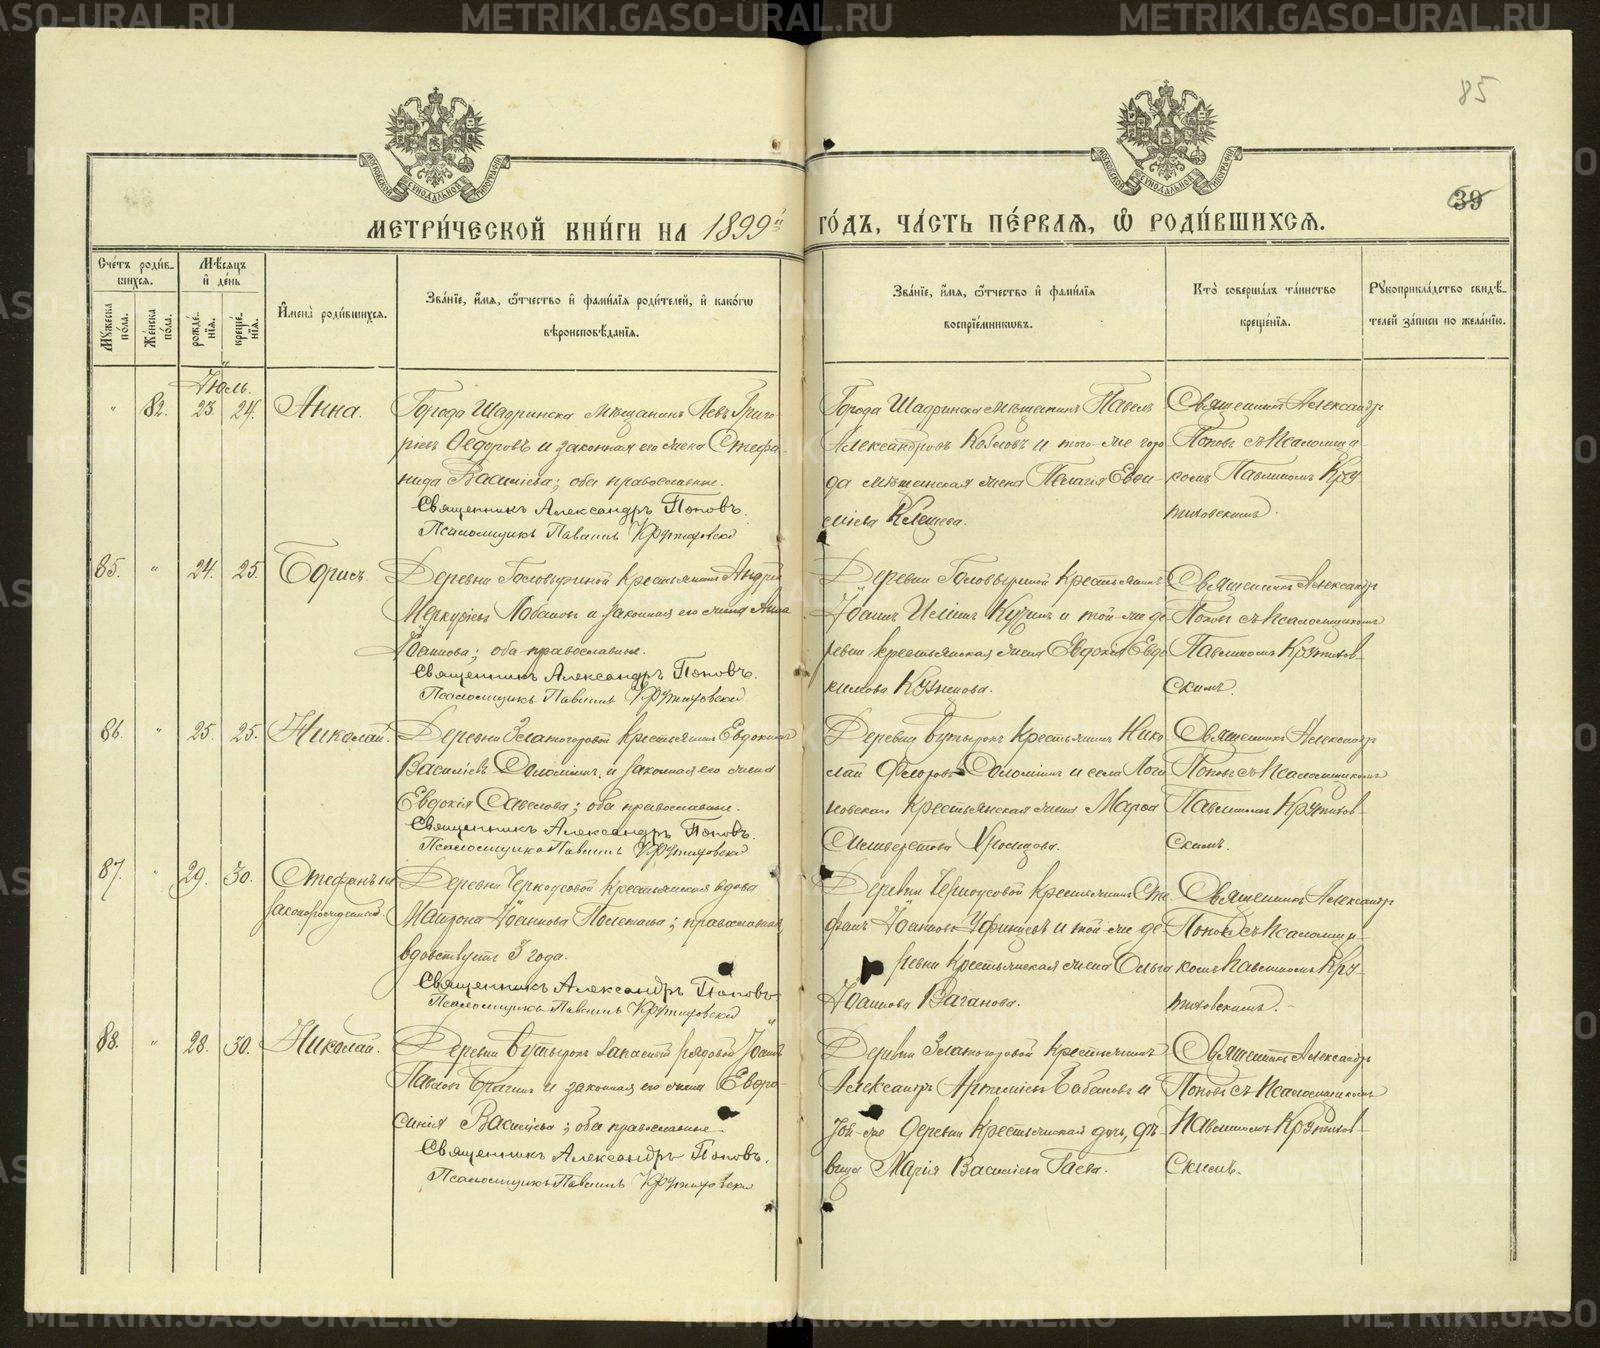 85
39
МЕТРИ́ЧЕСКОЙ КНИ́ГИ НА 1899й ГО́ДЪ, ЧА́СТЬ ПЕ́РВАЯ, Ѡ РОДИ́ВШИХСЯ.
Сче́тъ роди́в-
шихся.
Мꙋжеска по́ла.
Же́нска по́ла.
Мѣ́сяцъ и́ де́нь
рожде́-
нїя.
креще́-
нїя.
И҆мена̀ роди́вшихся.
Зва́нїе, и҆мя, ѻ҆́тчество и҆ фами́лїя роди́телей, и҆ како́гѡ
вѣроисповѣ́данїя.
Зва́нїе, и҆мя, ѻ҆́тчество и҆ фами́лїя
воспрїе́мникѡвъ.
Кто̀ соверша́лъ та́инство
креще́нїя.
Рꙋкоприкла́дство свидѣ́-
телей за́писи по жела́нїю.
Іюль.
" 82. 23. 24. Анна.
Города Шадринска мѣщанинъ Левъ Григо-
рїевъ Ѳедоровъ и законная его жена Стефа-
нида Васильева; оба православные.
Священникъ Александръ Поповъ.
Псаломщикъ Павлинъ Крутиховскій
Города Шадринска мѣщанинъ Павелъ
Александровъ и того-же горо
да мѣщанская жена Пелагія Евѳи-
міева
Священникъ Александръ
Поповъ съ Псаломщи
комъ Павлиномъ Кру
тиховскимъ.
85. " 24. 25. Борисъ.
Деревни Головыриной Крестьянинъ Андрей
Меркурьевъ Лобановъ и законная его жена Анна
Іоаннова; оба православные.
Священникъ Александръ Поповъ.
Псаломщикъ Павлинъ Крутиховскій
Деревни Головыриной Крестьянинъ
Іоаннъ и той-же де
ревни крестьянская жена Евдокія Евдо
кимова
Священникъ Александръ
Поповъ съ Псаломщикомъ
Павлиномъ Крутихов-
скимъ.
86. " 25. 25. Николай.
Деревни Златогоровой Крестьянинъ Евдокимъ
Васильевъ Соломинъ, и законная его жена
Евдокія Савелова; оба православные.
Священникъ Александръ Поповъ.
Псаломщикъ Павлинъ Крутиховскій
Деревни Бутырокъ Крестьянинъ Нико
лай Ѳедоровъ Соломинъ и села Логи
новскаго Крестьянская жена Марѳа
Сильверстова
Священникъ Александръ
Поповъ съ Псаломщикомъ
Павлиномъ Крутихов-
скимъ.
87. " 29. 30. Стефанъ не
законорожденный
Деревни Черноусовой Крестьянская вдова
Матрона Іоаннова Полетаева; православная,
вдовствуетъ 3 года.
Священникъ Александръ Поповъ
Псаломщикъ Павлинъ Крутиховскій
Деревни Черноусовой Крестьянинъ Сте
фанъ Іоанновъ Уфинцевъ и той-же де-
ревни Крестьянская жена Ольга
Іоаннова Ваганова.
Священникъ Александръ
Поповъ съ Псаломщи-
комъ Павлиномъ Кру-
тиховскимъ.
88. " 28. 30. Николай.
Деревни Бутырокъ запасной рядовой Іоаннъ
Павловъ Брагинъ и законная его жена Евфро-
синія Васильева; оба православные.
Священникъ Александръ Поповъ.
Псаломщикъ Павлинъ Крутиховскій
Деревни Златогоровой Крестьянинъ
Александръ Артемьевъ Бабановъ и
той-же деревни Крестьянская дочь, дѣ-
вица Марія Васильева Гаева.
Священникъ Александръ
Поповъ съ Псаломщикомъ
Павлиномъ Крутихов-
скимъ.
METRIKI.GASO-URAL.RU